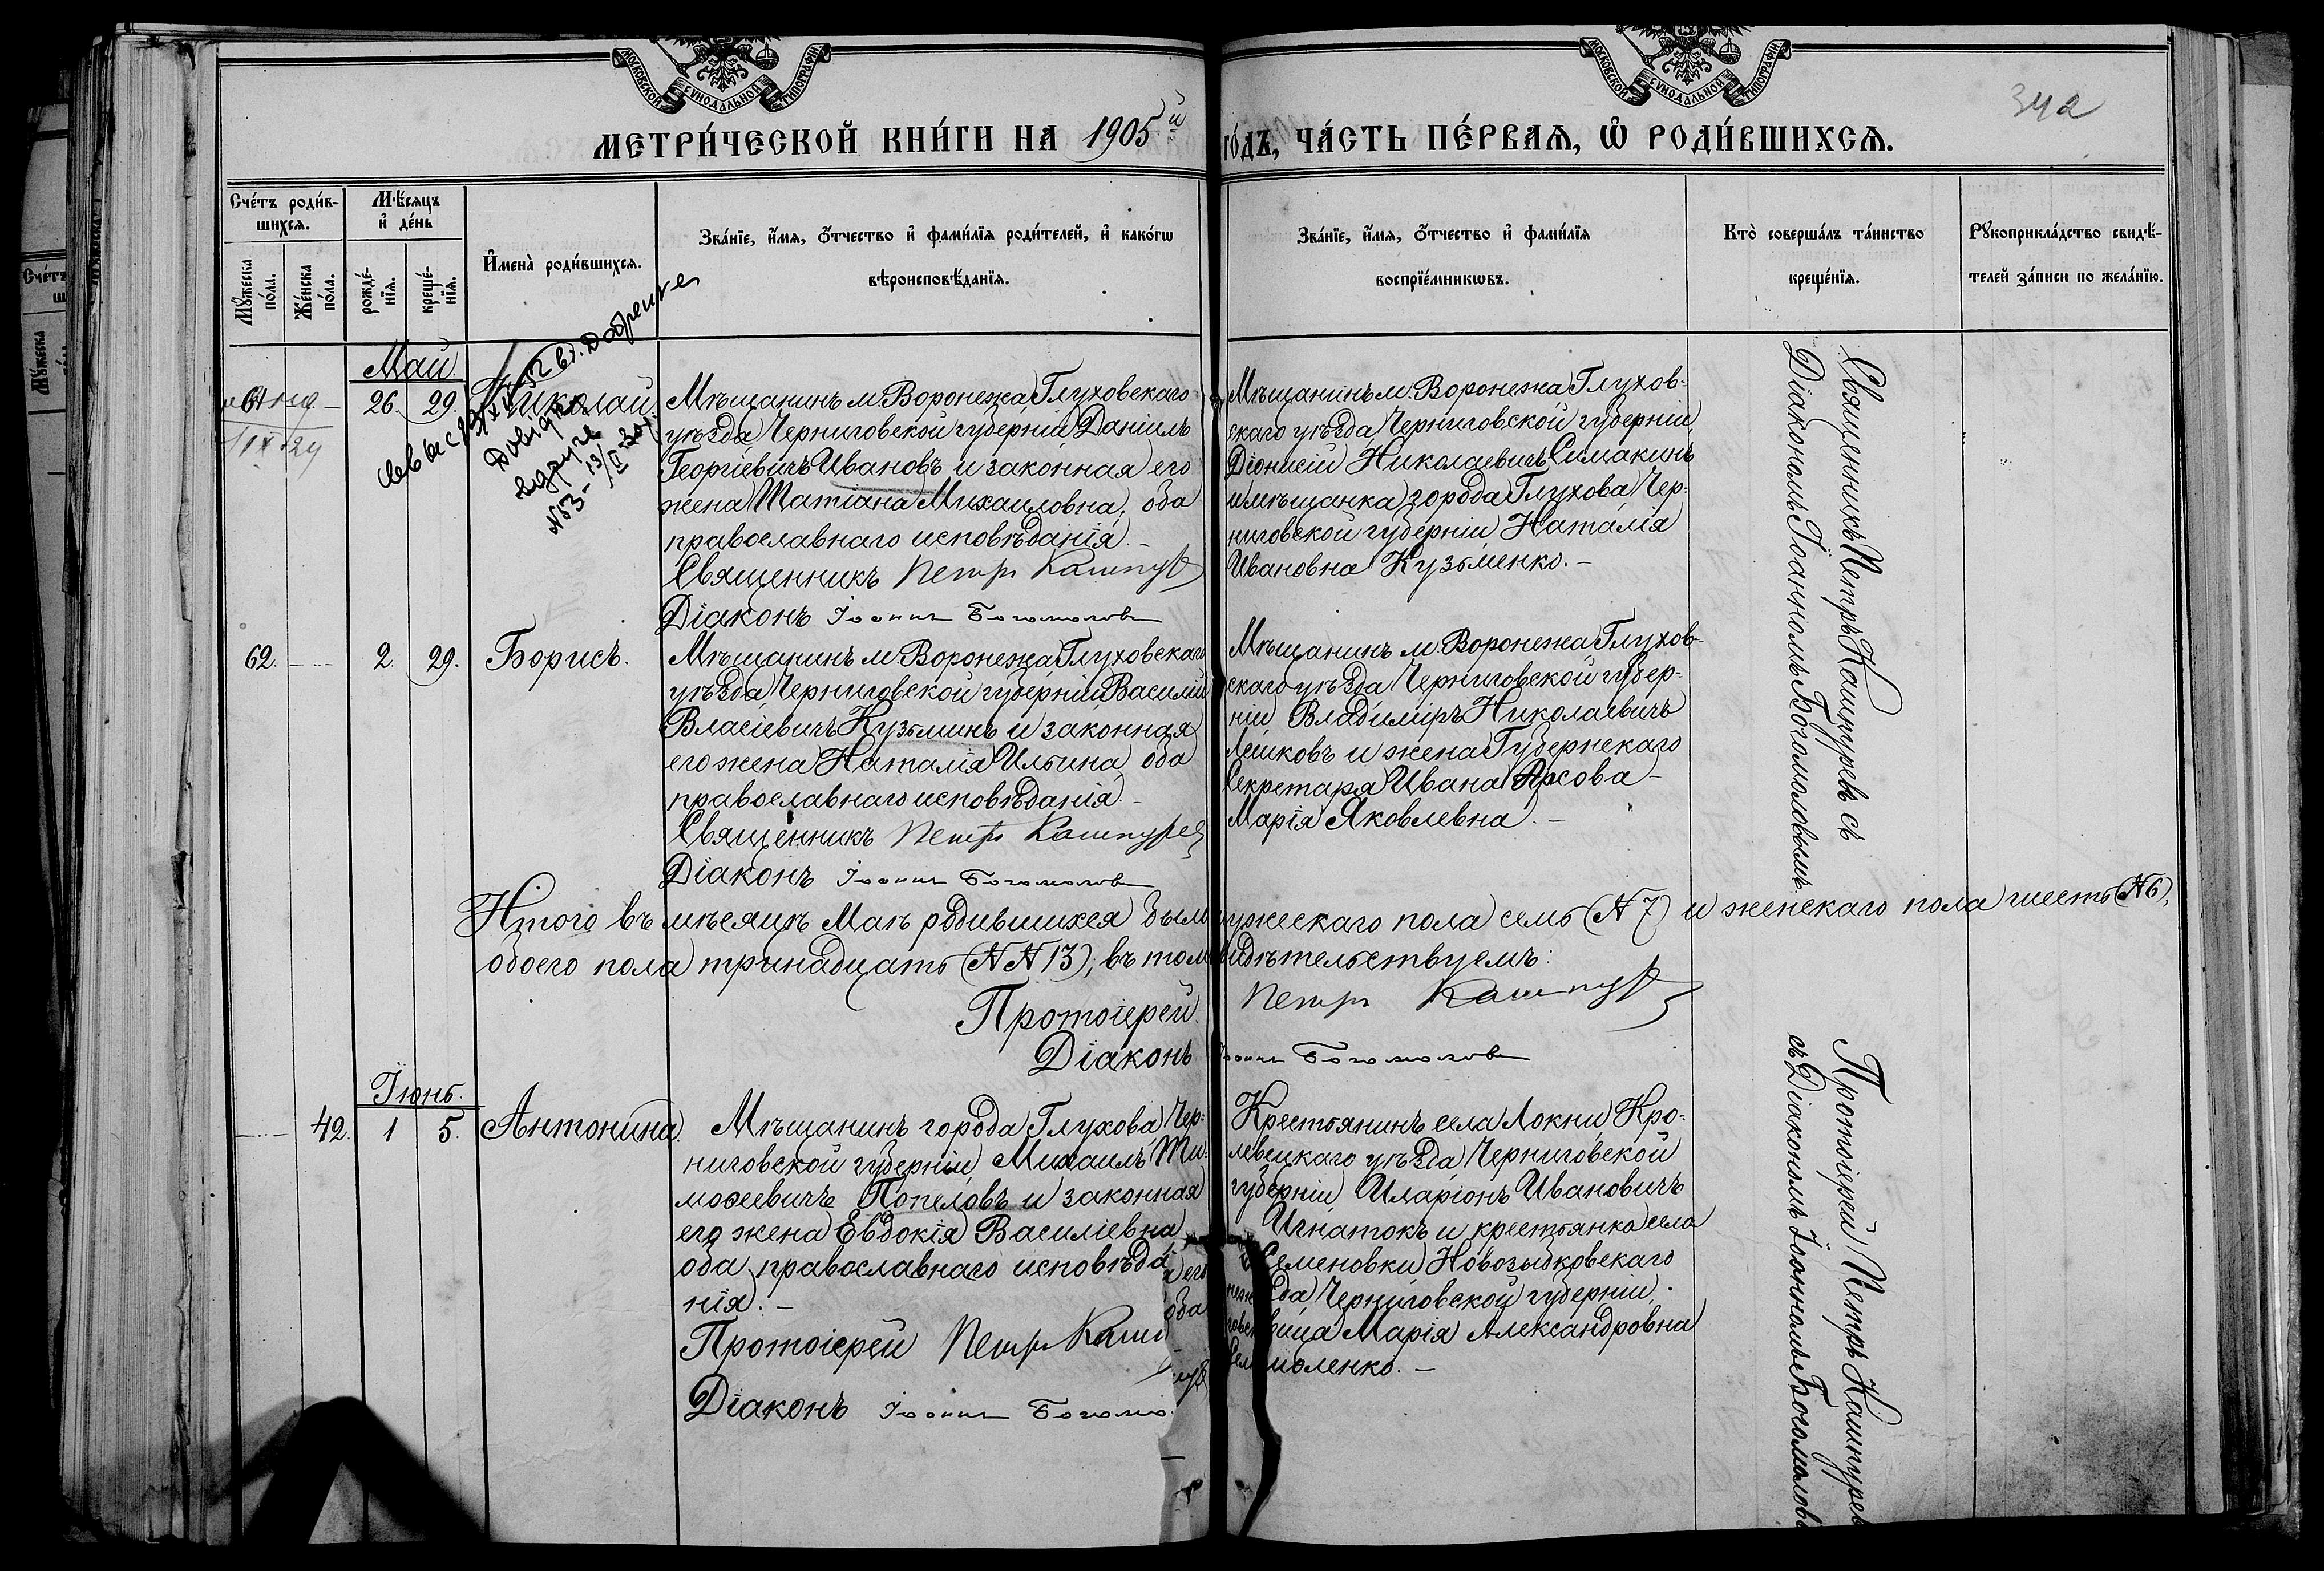 МОСКОВСКОЙ СУНОДАЛЬНОЙ ТИПОГРАФІИ
МОСКОВСКОЙ СУНОДАЛЬНОЙ ТИПОГРАФІИ
МЕТРИ́ЧЕСКОЙ КНИ́ГИ НА 1905й го́дъ, ЧА́СТЬ ПЕ́РВАЯ, Ѿ РОДИ́ВШИХСЯ.
34а
Сче́тъ роди́в-
шихся.
Му́жеска по́ла.
Же́нска по́ла.
Мѣ́сяцъ
и де́нь
рожде́-
нїя.
креще́-
нїя.
Имена̀ роди́вшихся.
Зва́нїе, и́мя, о́тчество и фами́лїя роди́телей, и како́гѡ
вѣроисповѣ́данїя.
Зва́нїе, и́мя, о́тчество и фами́лїя
воспрїе́мникѡвъ.
Кто̀ соверша́лъ та́инство
креще́нїя.
Рукоприкла́дство свидѣ́-
телей за́писи по жела́нїю.
Май.
61
26. 29. Николай.
Мѣщанинъ м. Воронежа Глуховскаго
уѣзда Черниговской губерніи Даніилъ
Георгіевичъ Ивановъ и законная его
жена Татіана Михаиловна, оба
православнаго исповѣданія. –
Священникъ Петръ Кашпур
Діаконъ Іоаннъ Богомолов
Мѣщанинъ м. Воронежа Глухов-
скаго уѣзда Черниговской губерніи
Діонисій Николаевичъ Симакинъ
и мѣщанка города Глухова Чер-
ниговской губерніи Наталія
Ивановна Кузьменко. –
Священникъ Петръ Кашпуревъ съ
Діакономъ Іоанномъ Богомоловымъ.
62. 2. 29. Борисъ.
Мѣщанинъ м. Воронежа Глуховскаго
уѣзда Черниговской губерніи Василій
Власіевичъ Кузьминъ и законная
его жена Наталія Ильина, оба
православнаго исповѣданія. –
Священникъ Петръ Кашпурев
Діаконъ Іоаннъ Богомолов
Мѣщанинъ м. Воронежа Глухов-
скаго уѣзда Черниговской губер-
ніи Владиміръ Николаевичъ
Лешковъ и жена Губернскаго
Секретаря Ивана
Марія Яковлевна. –
Итого въ мѣсяцѣ Маѣ родившихся было мужескаго пола семь (№ 7) и женскаго пола шесть (№ 6),
обоего пола тринадцать (№№ 13); въ томъ свидѣтельствуемъ:
Протоіерей Петръ Кашпур
Діаконъ Іоаннъ Богомолов
Іюнь.
42. 1 5. Антонина.
Мѣщанинъ города Глухова Чер-
ниговской губерніи Михаилъ Ти-
мофеевичъ Попеловъ и законная
его жена Евдокія Василіевна
оба православнаго исповѣда
нія. –
Протоіерей Петръ Каш
Діаконъ Іоаннъ Богомо
Крестьянинъ села Локни Кро-
левецкаго уѣзда Черниговской
губерніи Иларіонъ Ивановичъ
Игнатокъ и крестьянка села
Семеновки Новозыбковскаго
да Черниговской губерніи
вица Марія Александровна
моленко. –
Протоіерей Петръ Кашпуревъ
съ Діакономъ Іоанномъ Богомолов